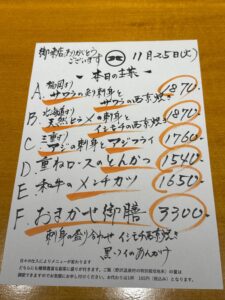 御来店ありがとう
ございます
11月25日(火)
本日の主菜
A. 福岡より サワラの刺身と
サワラの西京焼き 1870-
B. 北海道より 天然ヒラメの刺身と
イシモチの西京焼き 1870-
C. 三重より アジの刺身とアジフライ 1760-
D. 重ねロースのとんかつ 1540-
E. 和牛のメンチカツ 1650-
F. おまかせ御膳 3300-
刺身の盛り合わせ イシモチ西京焼き
黒ソイのあんかけ
日々の仕入によりメニューが変わります